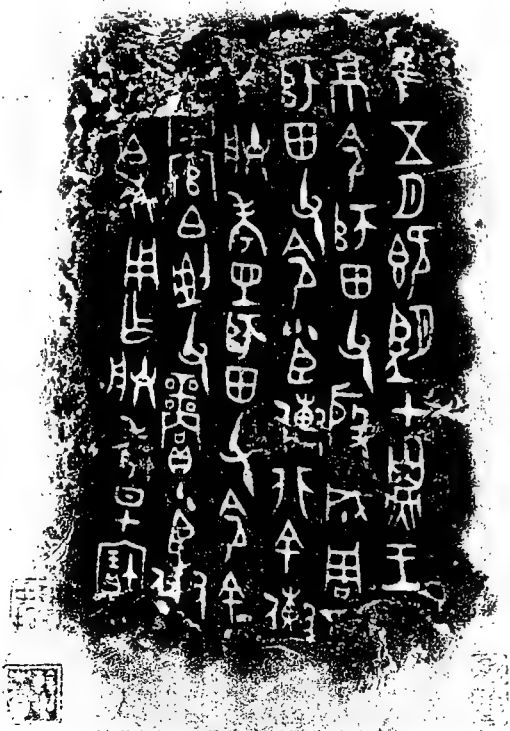 隹五月既望甲子王
京令師田父殷成周
師田父令小臣傳非余傳
朕考師田父令余
官伯父賞小臣傳
伯休用作朕考日甲寶